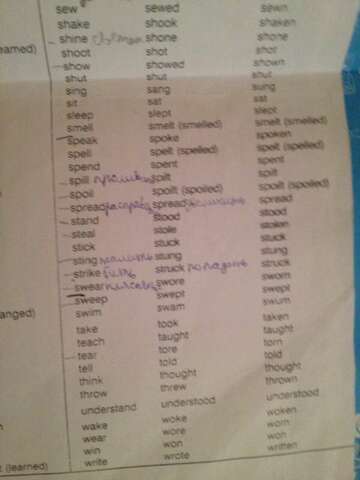 sew sewed sewn
shake shook shaken
shine shone shone
earned) shoot shot shot
show showed shown
shut shut shut
sing sang sung
sit sat sat
sleep slept slept
smell smelt (smelled) smelt (smelled)
speak spoke spoken
spell spelt (spelled) spelt (spelled)
spend spent spent
spill spilt spilt
spoil spoilt (spoiled) spoilt (spoiled)
spread spread spread
stand stood stood
steal stole stolen
stick stuck stuck
sting stung stung
strike struck struck
swear swore sworn
sweep swept swept
anged) swim swam swum
take took taken
teach taught taught
tear tore torn
tell told told
think thought thought
throw threw thrown
understand understood understood
wake woke woken
wear wore worn
win won won
t (learned) write wrote written